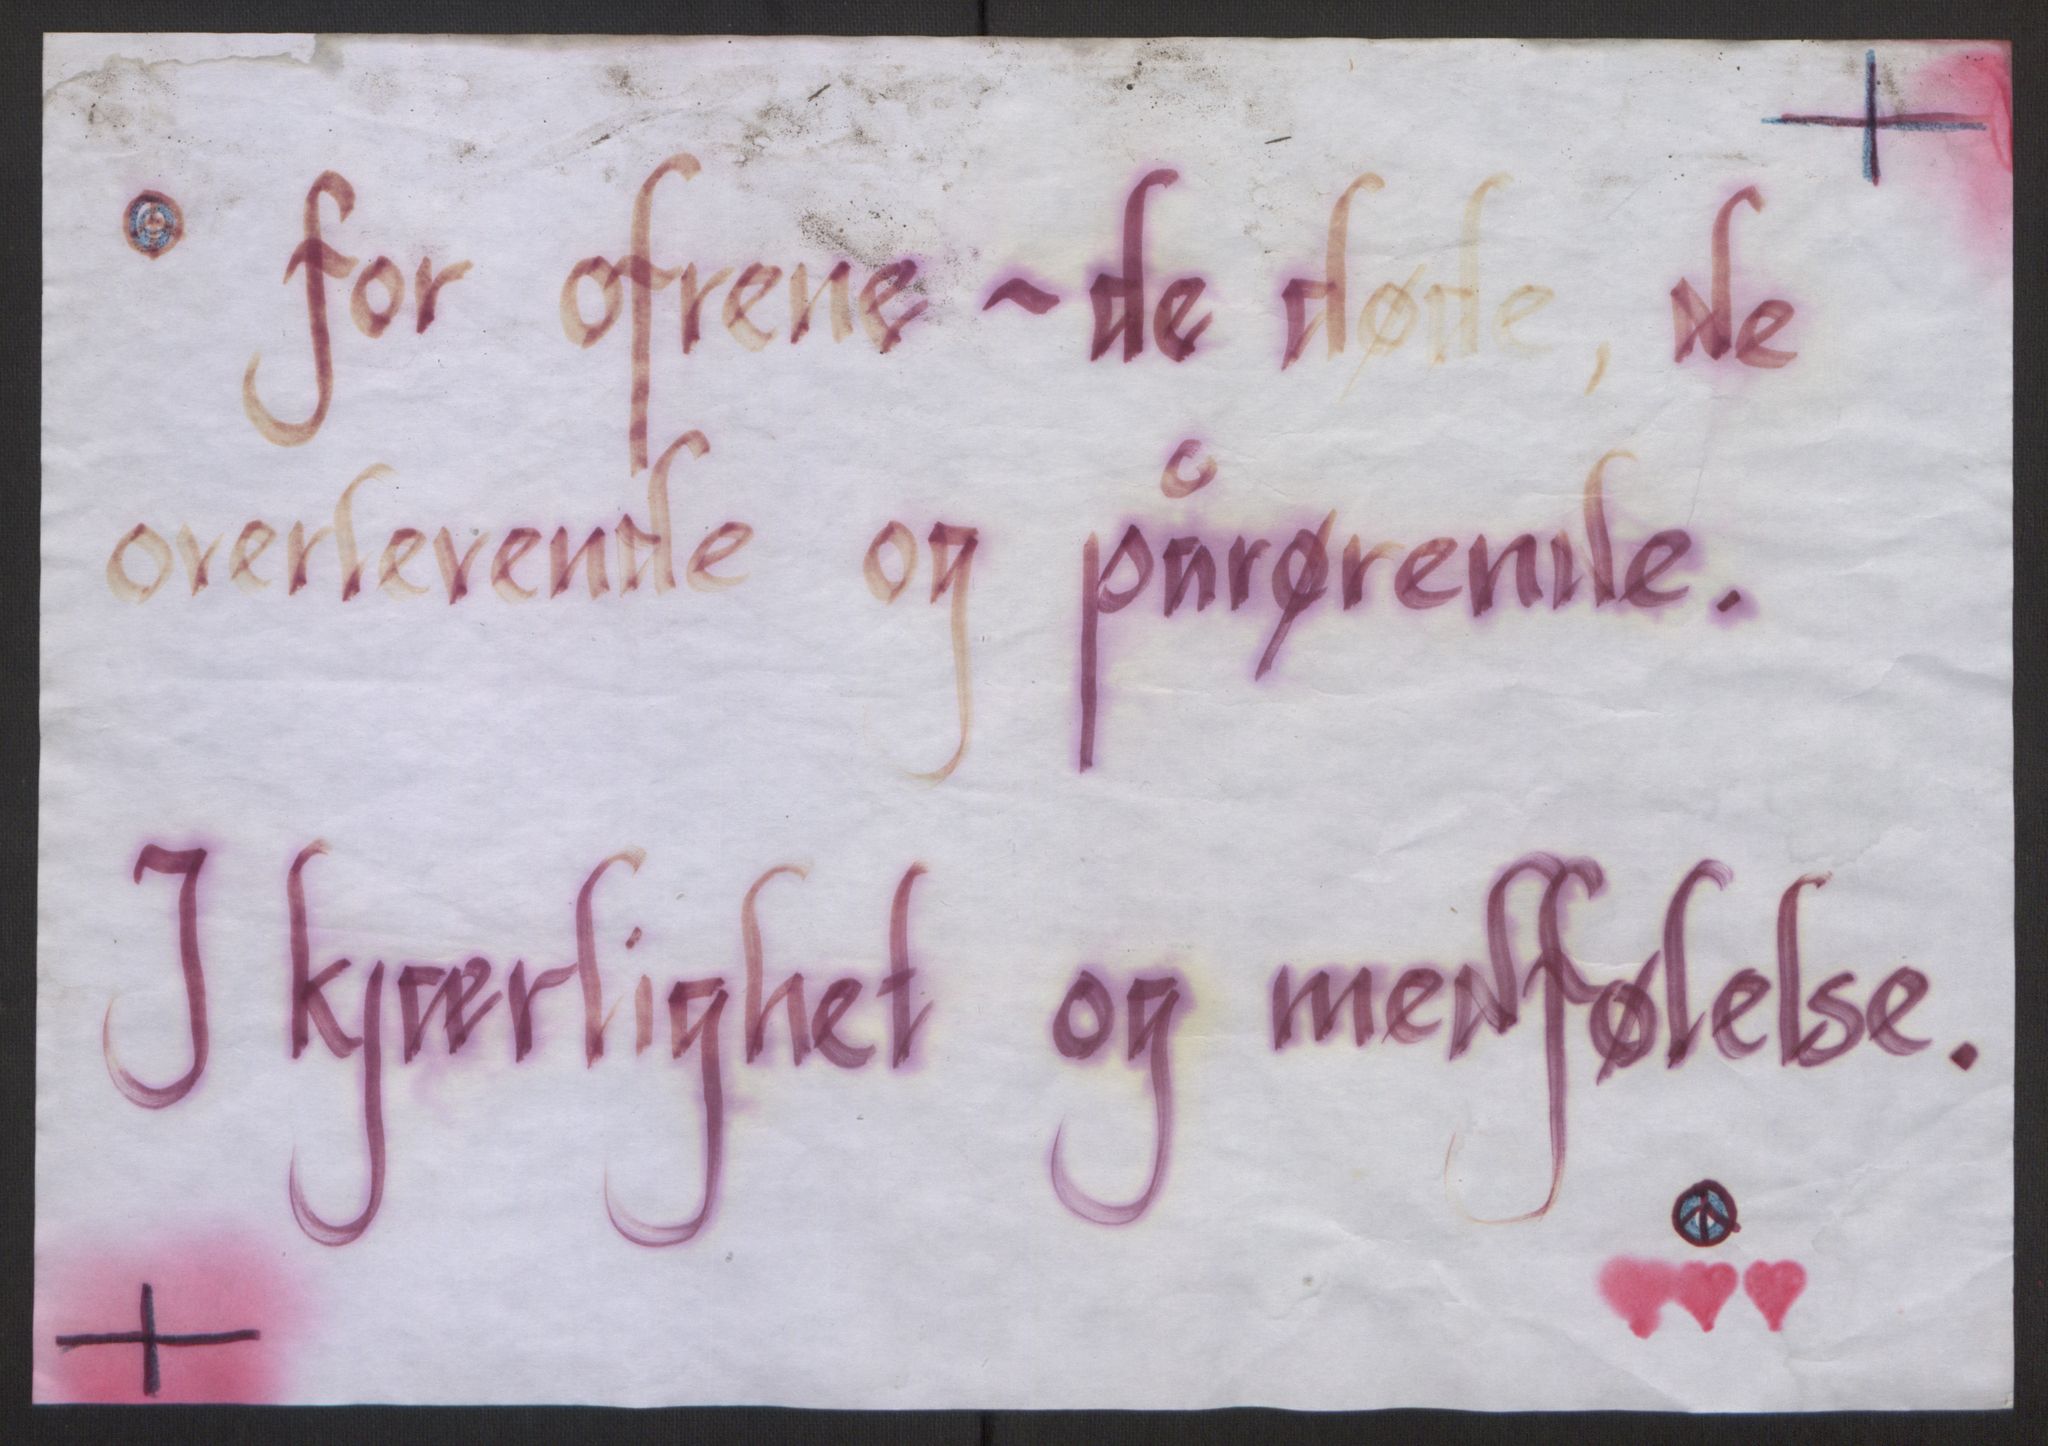 for ofrene ~ de døde, de
overlevende og pårørende.
I kjærlighet og medfølelse.